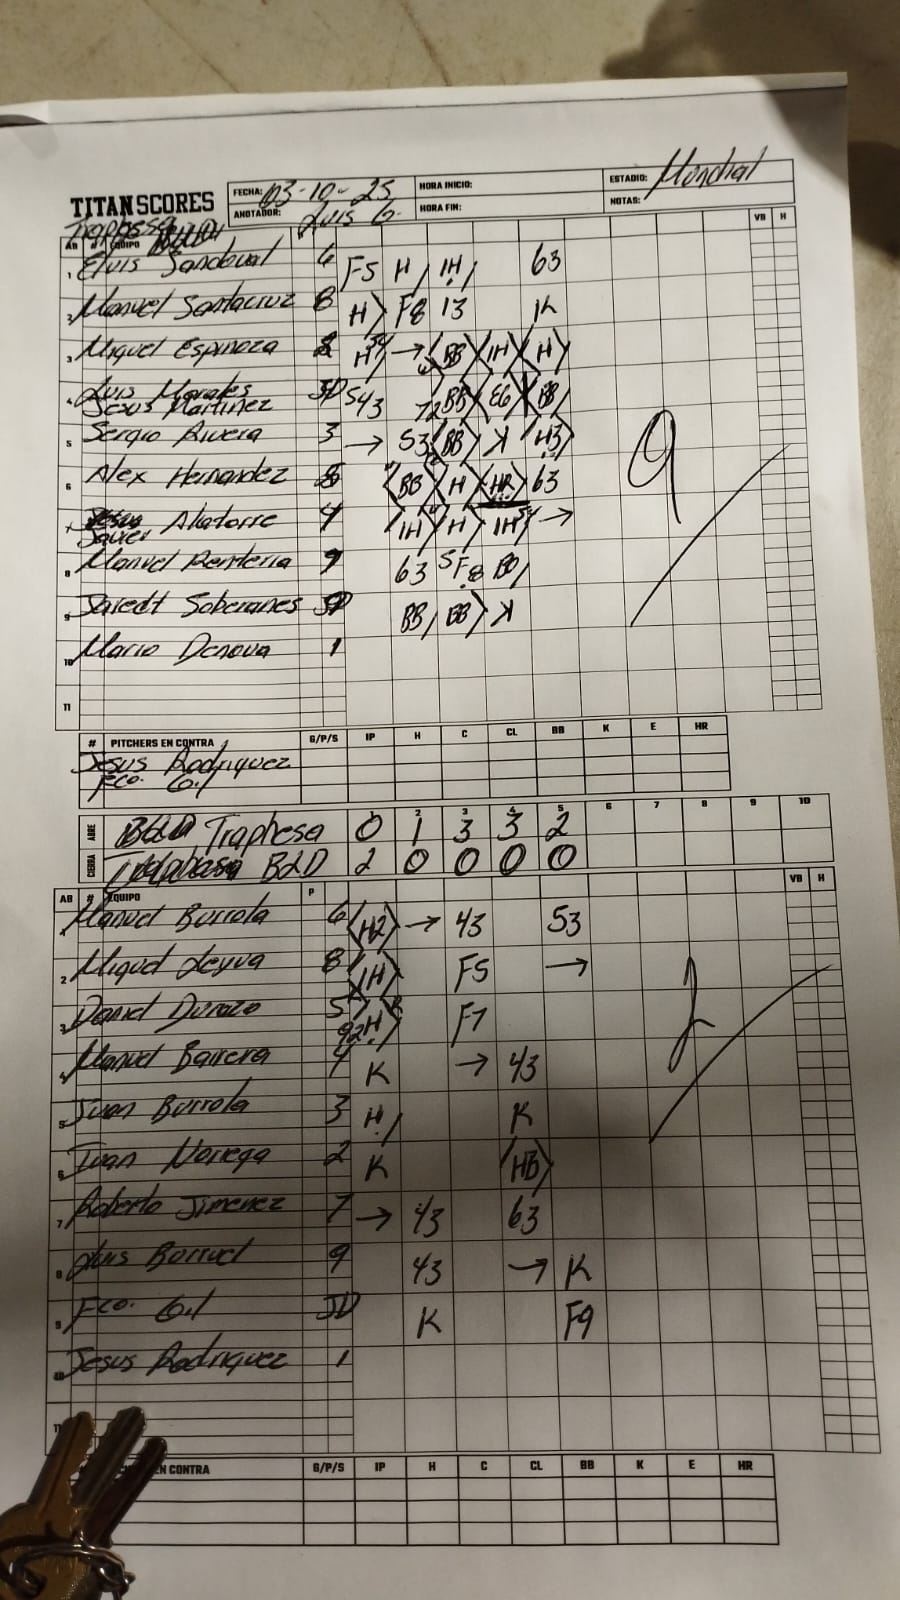 TITAN SCORES
FECHA: 03-10-25
HORA INICIO:
ESTADIO: Mundial
ANOTADOR: Luis G.
HORA FIN:
NOTAS:
Traphesa
AB # EQUIPO VB H
1 Elvis Sandoval 6 F5 H IH 63
2 Manuel Santacruz 8 H F8 13 K
3 Miguel Espinoza 2 H → BB IH H
4 Luis Morales JD 543 BB E6 BB
Jesus Martinez
5 Sergio Rivera 3 → 53 BB K H3
6 Alex Hernandez 5 BB H HR 63
7 Javier Alatorre 4 IH H IH →
8 Manuel Renteria 9 63 SF8 BB
9 Jaredt Soberanes BB BB K
10 Mario Denova 1
11
# PITCHERS EN CONTRA G/P/S IP H C CL BB K E HR
Jesus Rodriguez
Fco. Gil
2 3 4 5 6 7 8 9 10
ABRE Traphesa 0 1 3 3 2
CIERRA BLD 2 0 0 0 0
AB # EQUIPO P VB H
1 Manuel Burrola 6 H2 → 43 53
2 Miguel Leyva 8 IH F5 →
3 Daniel Durazo 5 H F7
4 Manuel Barrera 4 K → 43
5 Juan Burrola 3 H K
6 Ivan Noriega 2 K HB
7 Roberto Jimenez 7 → 43 63
8 Luis Borruel 9 43 → K
9 Fco. Gil JD K F9
10 Jesus Rodriguez 1
11
EN CONTRA G/P/S IP H C CL BB K E HR
9
2